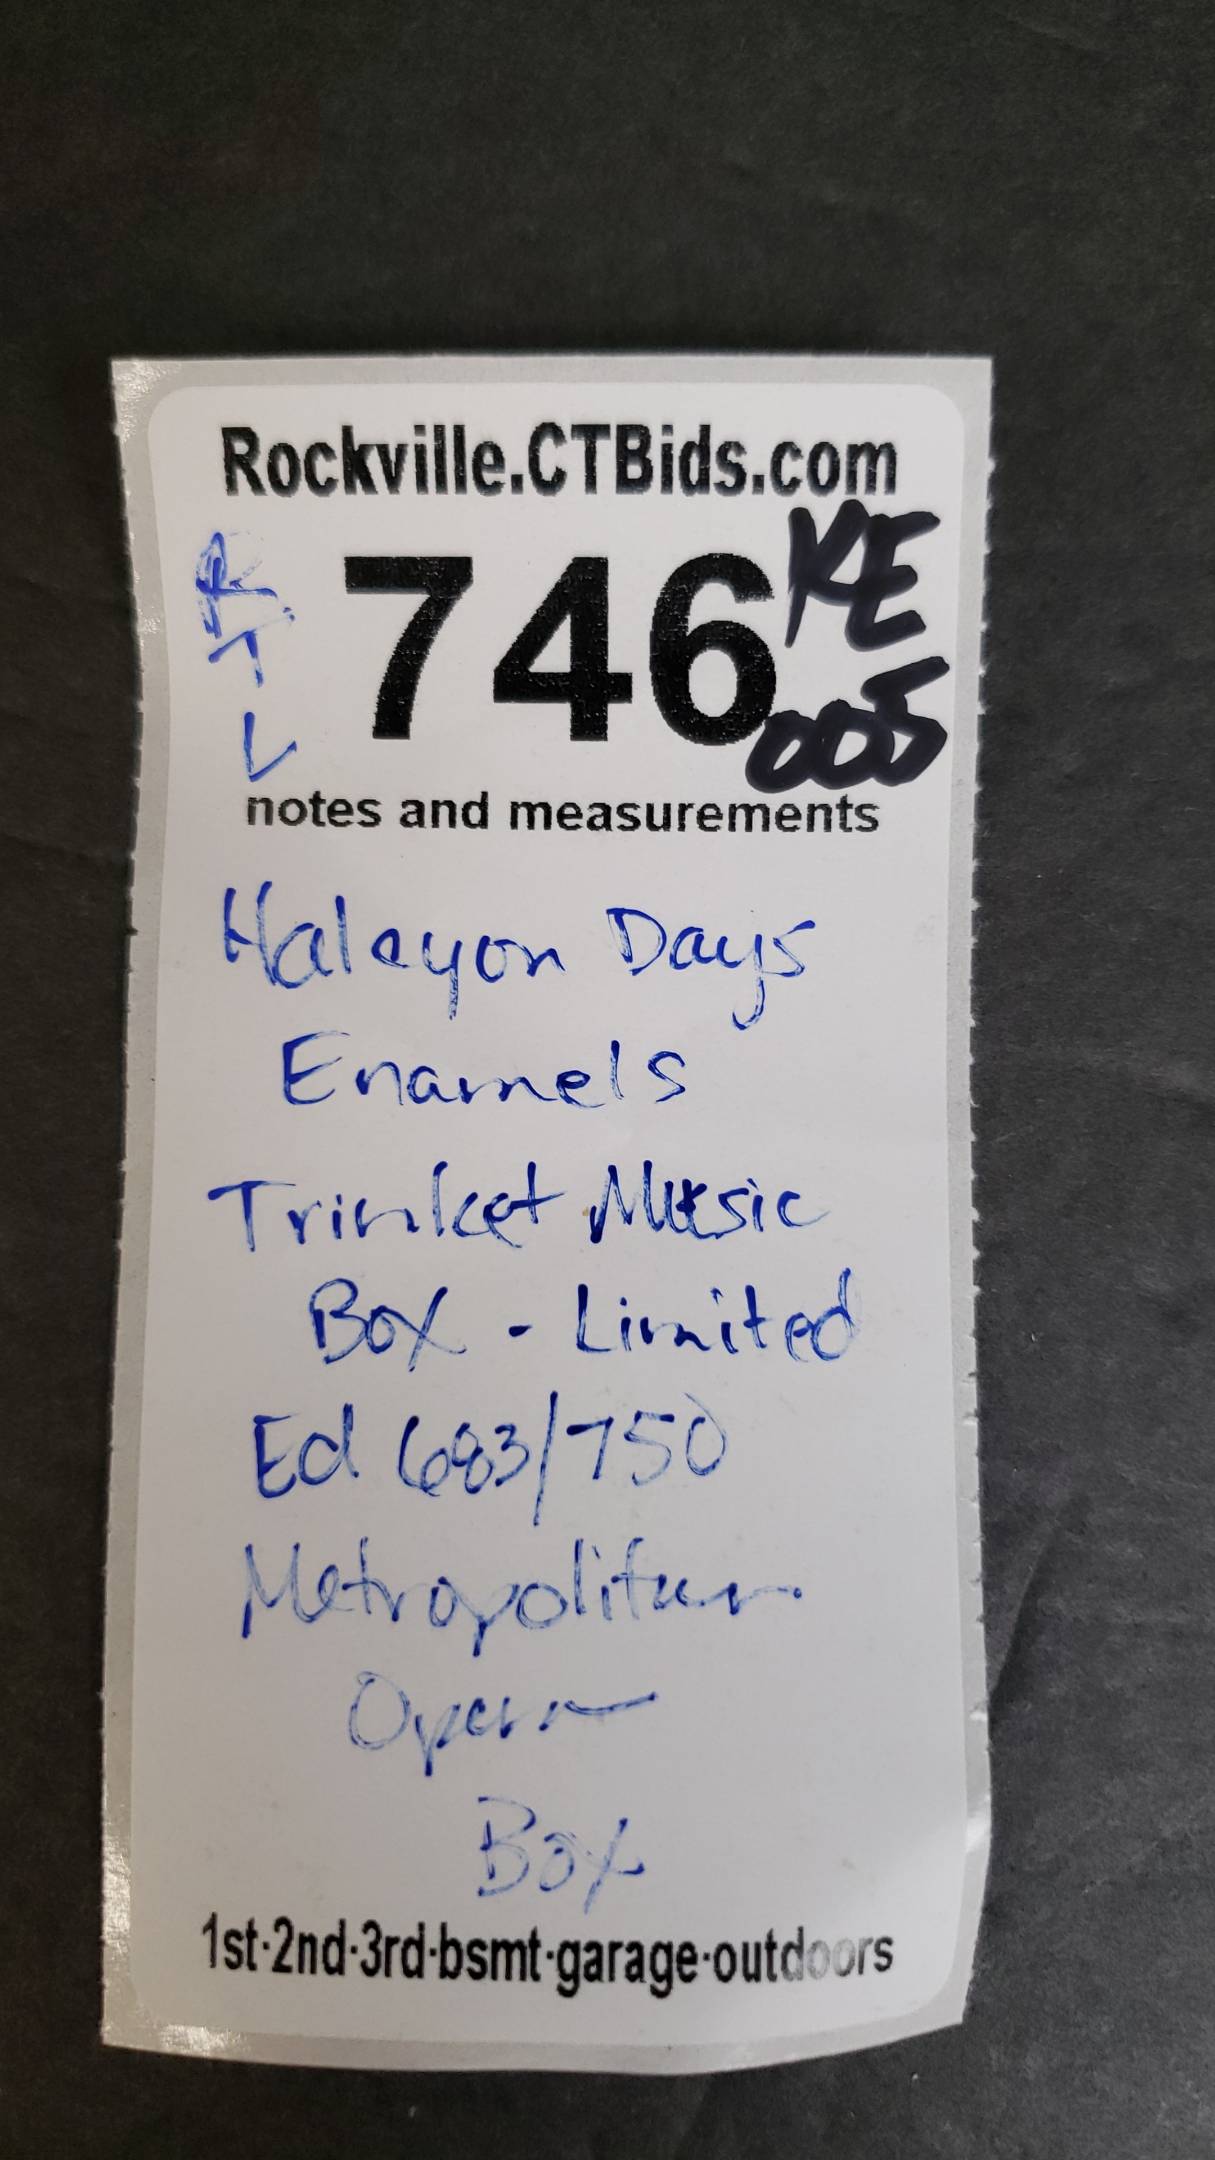 Rockville.CTBids.com
RTL
746
KE
005
notes and measurements
Halcyon Days
Enamels
Trinket Music
Box - Limited
Ed 683/750
Metropolitan
Opera
Box
1st·2nd·3rd·bsmt·garage·outdoors